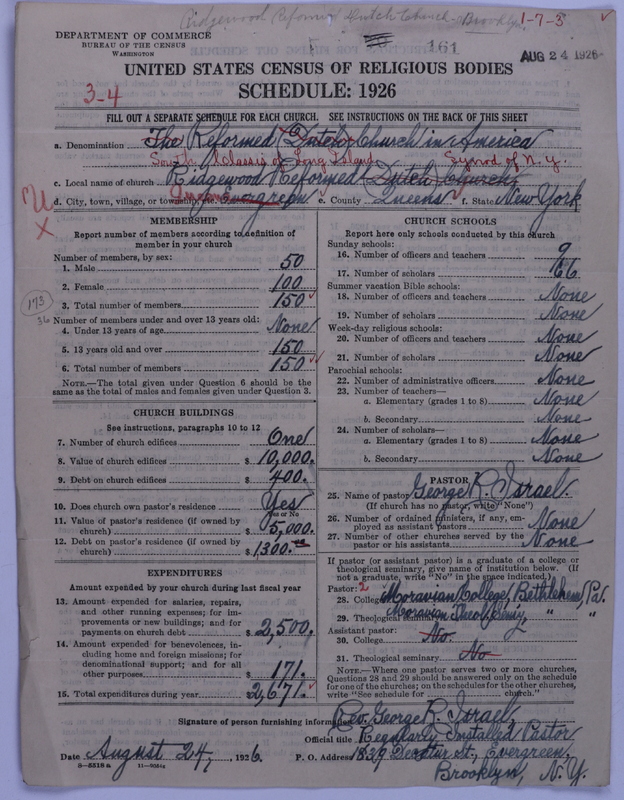 Ridgewood Reformed Dutch Church - Brooklyn
1-7-3
DEPARTMENT OF COMMERCE
BUREAU OF THE CENSUS
WASHINGTON
161
AUG 24 1926
UNITED STATES CENSUS OF RELIGIOUS BODIES
3-4
SCHEDULE: 1926
FILL OUT A SEPARATE SCHEDULE FOR EACH CHURCH. SEE INSTRUCTIONS ON THE BACK OF THIS SHEET
a. Denomination The Reformed Dutch Church in America
South Classis of Long Island Synod of N.Y.
c. Local name of church Ridgewood Reformed Dutch Church
d. City, town, village, or township Evergreen e. County Queens f. State New York
MEMBERSHIP
Report number of members according to definition of
member in your church
Number of members, by sex:
1. Male 50
2. Female 100
3. Total number of members 150
173
36
Number of members under and over 13 years old:
4. Under 13 years of age None
5. 13 years old and over 150
6. Total number of members 150
NOTE.—The total given under Question 6 should be the
same as the total of males and females given under Question 3.
CHURCH BUILDINGS
See instructions, paragraphs 10 to 12
7. Number of church edifices One
8. Value of church edifices $ 10,000.
9. Debt on church edifices $ 400.
10. Does church own pastor's residence Yes
Yes or No
11. Value of pastor's residence (if owned by
church) $ 5,000.
12. Debt on pastor's residence (if owned by
church) $ 1300.
EXPENDITURES
Amount expended by your church during last fiscal year
13. Amount expended for salaries, repairs,
and other running expenses; for im-
provements or new buildings; and for
payments on church debt $ 2,500.
14. Amount expended for benevolences, in-
cluding home and foreign missions; for
denominational support; and for all
other purposes $ 171.
15. Total expenditures during year $ 2,671.
CHURCH SCHOOLS
Report here only schools conducted by this church
Sunday schools:
16. Number of officers and teachers 9
17. Number of scholars 66
Summer vacation Bible schools:
18. Number of officers and teachers None
19. Number of scholars None
Week-day religious schools:
20. Number of officers and teachers None
21. Number of scholars None
Parochial schools:
22. Number of administrative officers None
23. Number of teachers—
a. Elementary (grades 1 to 8) None
b. Secondary None
24. Number of scholars—
a. Elementary (grades 1 to 8) None
b. Secondary None
PASTOR
25. Name of pastor George R. Israel.
(If church has no pastor, write "None")
26. Number of ordained ministers, if any, em-
ployed as assistant pastors None
27. Number of other churches served by the
pastor or his assistants None
If pastor (or assistant pastor) is a graduate of a college or
theological seminary, give name of institution below. (If
not a graduate, write "No" in the space indicated.)
Pastor: 2
28. College Moravian College, Bethlehem, Pa.
29. Theological seminary Moravian Theol. Semy, " "
Assistant pastor:
30. College No
31. Theological seminary No
NOTE.—Where one pastor serves two or more churches,
Questions 28 and 29 should be answered only on the schedule
for one of the churches; on the schedules for the other churches,
write "See schedule for church."
Signature of person furnishing information Rev. George R. Israel,
Official title Regularly Installed Pastor
Date August 24, 1926. P. O. Address 1839 Decatur St., Evergreen,
Brooklyn, N.Y.
8-5518 a